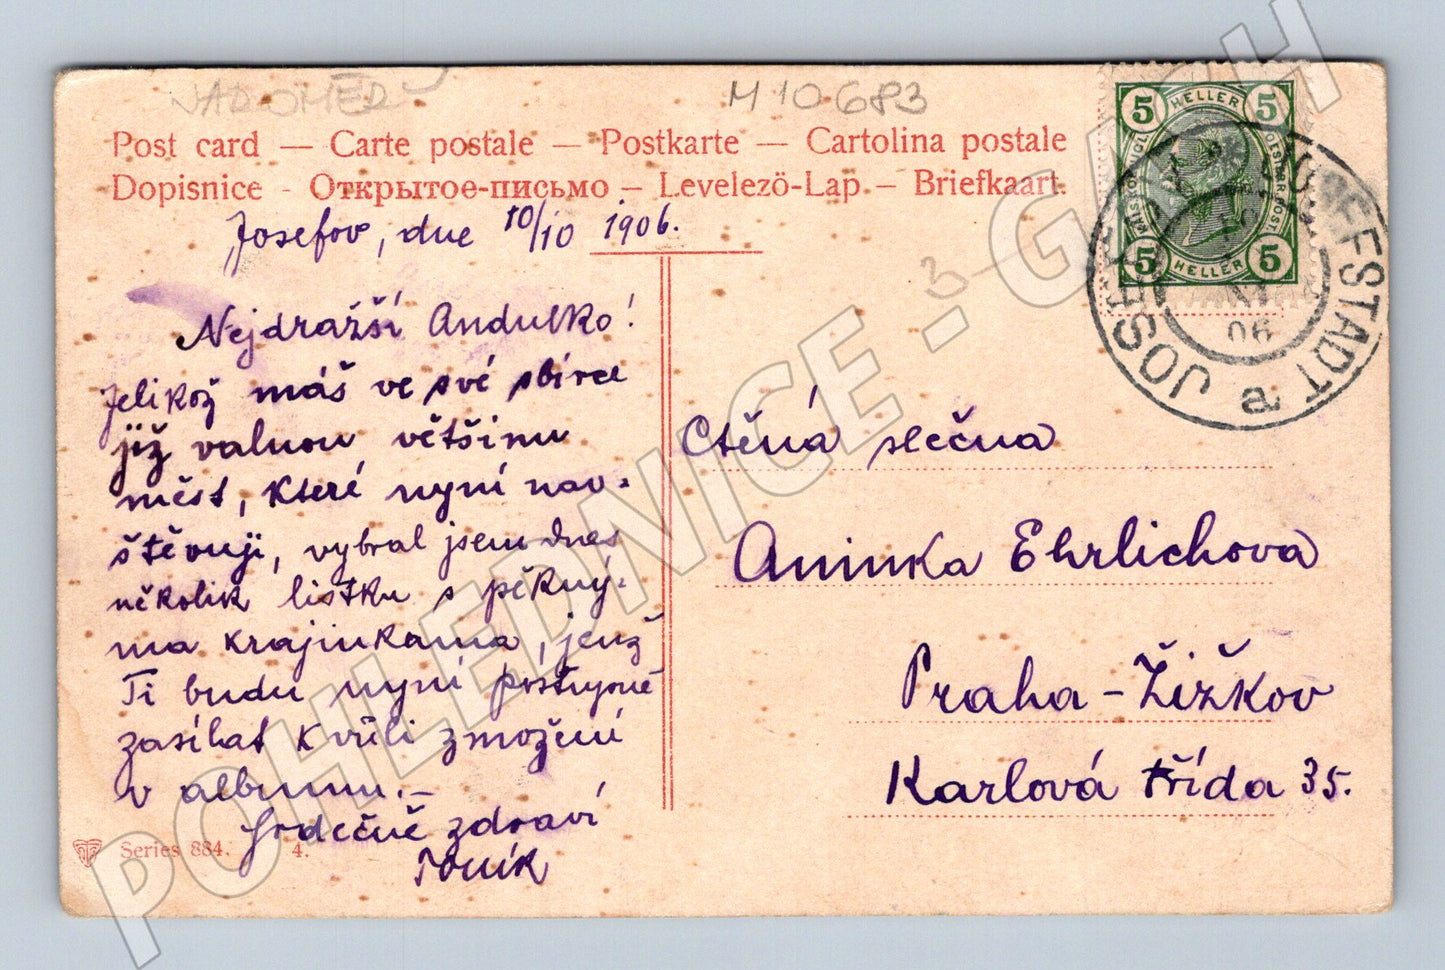 M 10683
Post card — Carte postale — Postkarte — Cartolina postale
Dopisnice - Открытое-письмо — Levelező-Lap. — Briefkaart.
Josefov, dne 10/10 1906.
Nejdražší Andulko!
Jelikož máš ve své sbírce
již valnou většinu
měst, které nyní nav-
štěvuji, vybral jsem dnes
několik lístku s pěkný-
ma krajinkama, jenž
Ti budu nyní postupně
zasílat k vůli zmožení
v albumu. –
Srdečně zdraví
Toník
Series 884. 4.
5 HELLER 5
5 HELLER 5
JOSEFSTADT a JOSEFOV
06
3
Ctěná slečna
Aninka Ehrlichova
Praha – Žižkov
Karlová třída 35.
POHLEDNICE - GACH